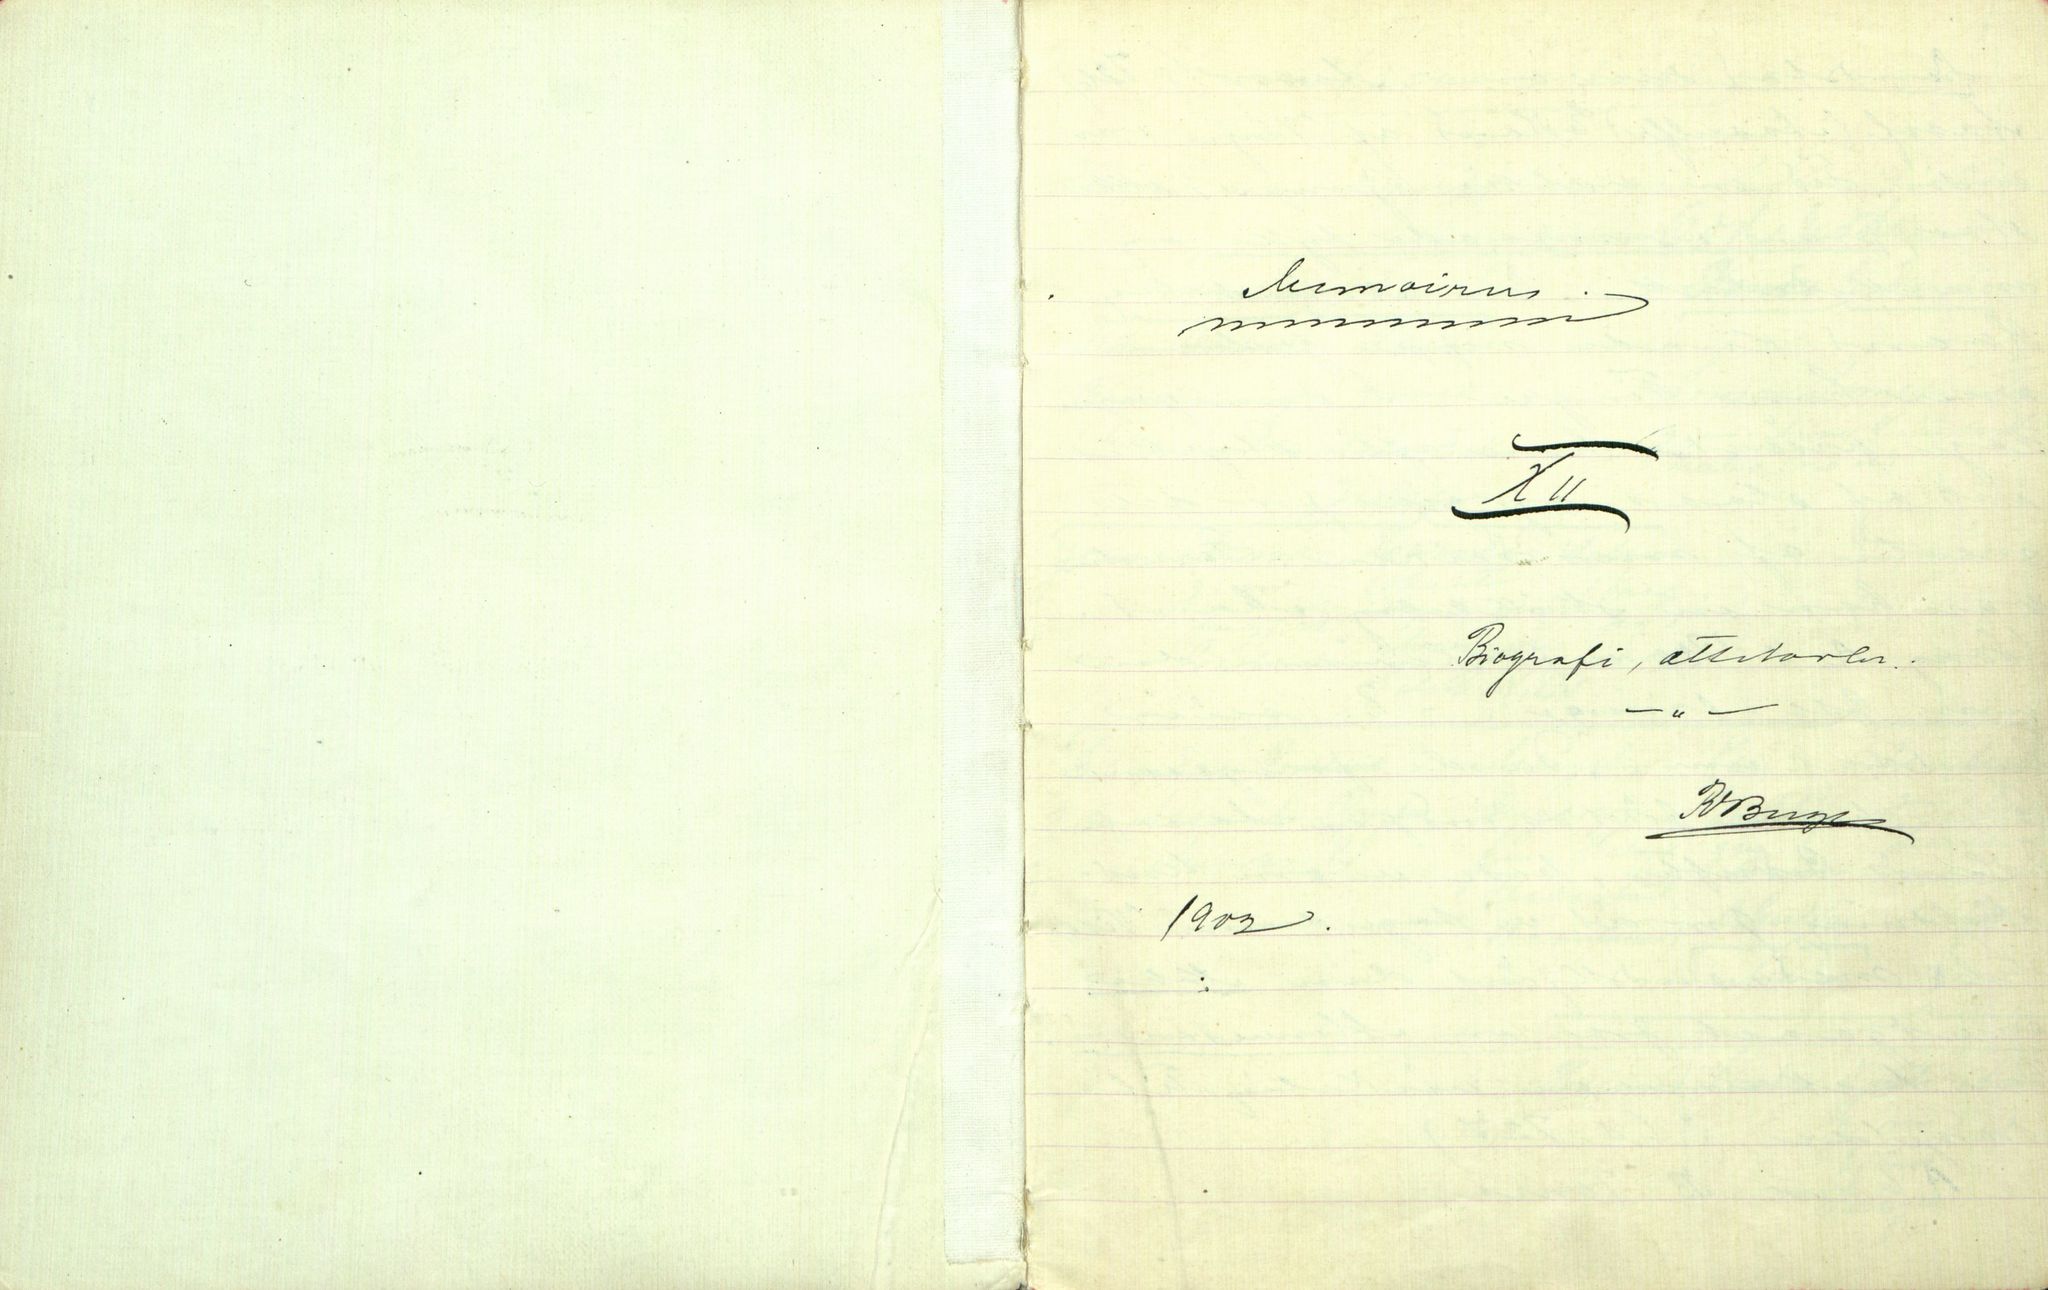 Memoirer.
XII
Biografi, ættetavler.
— „ —
RBerge
1903.